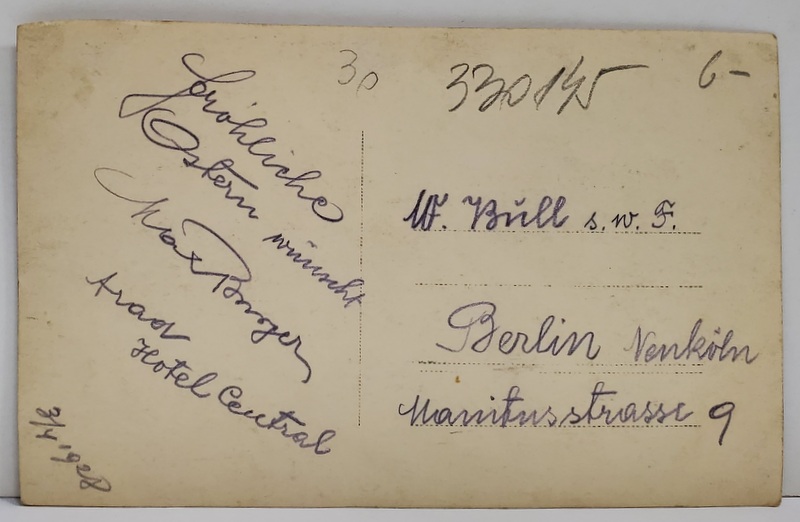 30
330145
6-
Fröhliche
Ostern wünscht
Max Burger
Arad
Hotel Central
3/4 1928
W. Büll s.w.F.
Berlin Neuköln
Manitusstrasse 9